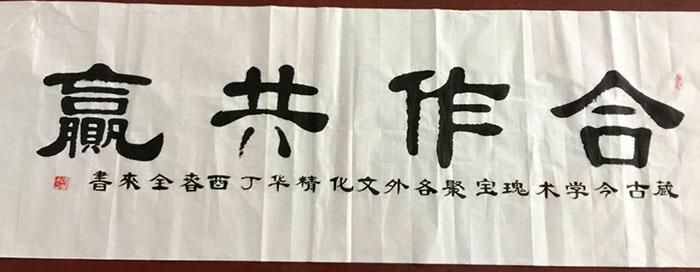 合作共赢
藏古今学术瑰宝聚各外文化精华丁酉春全來書